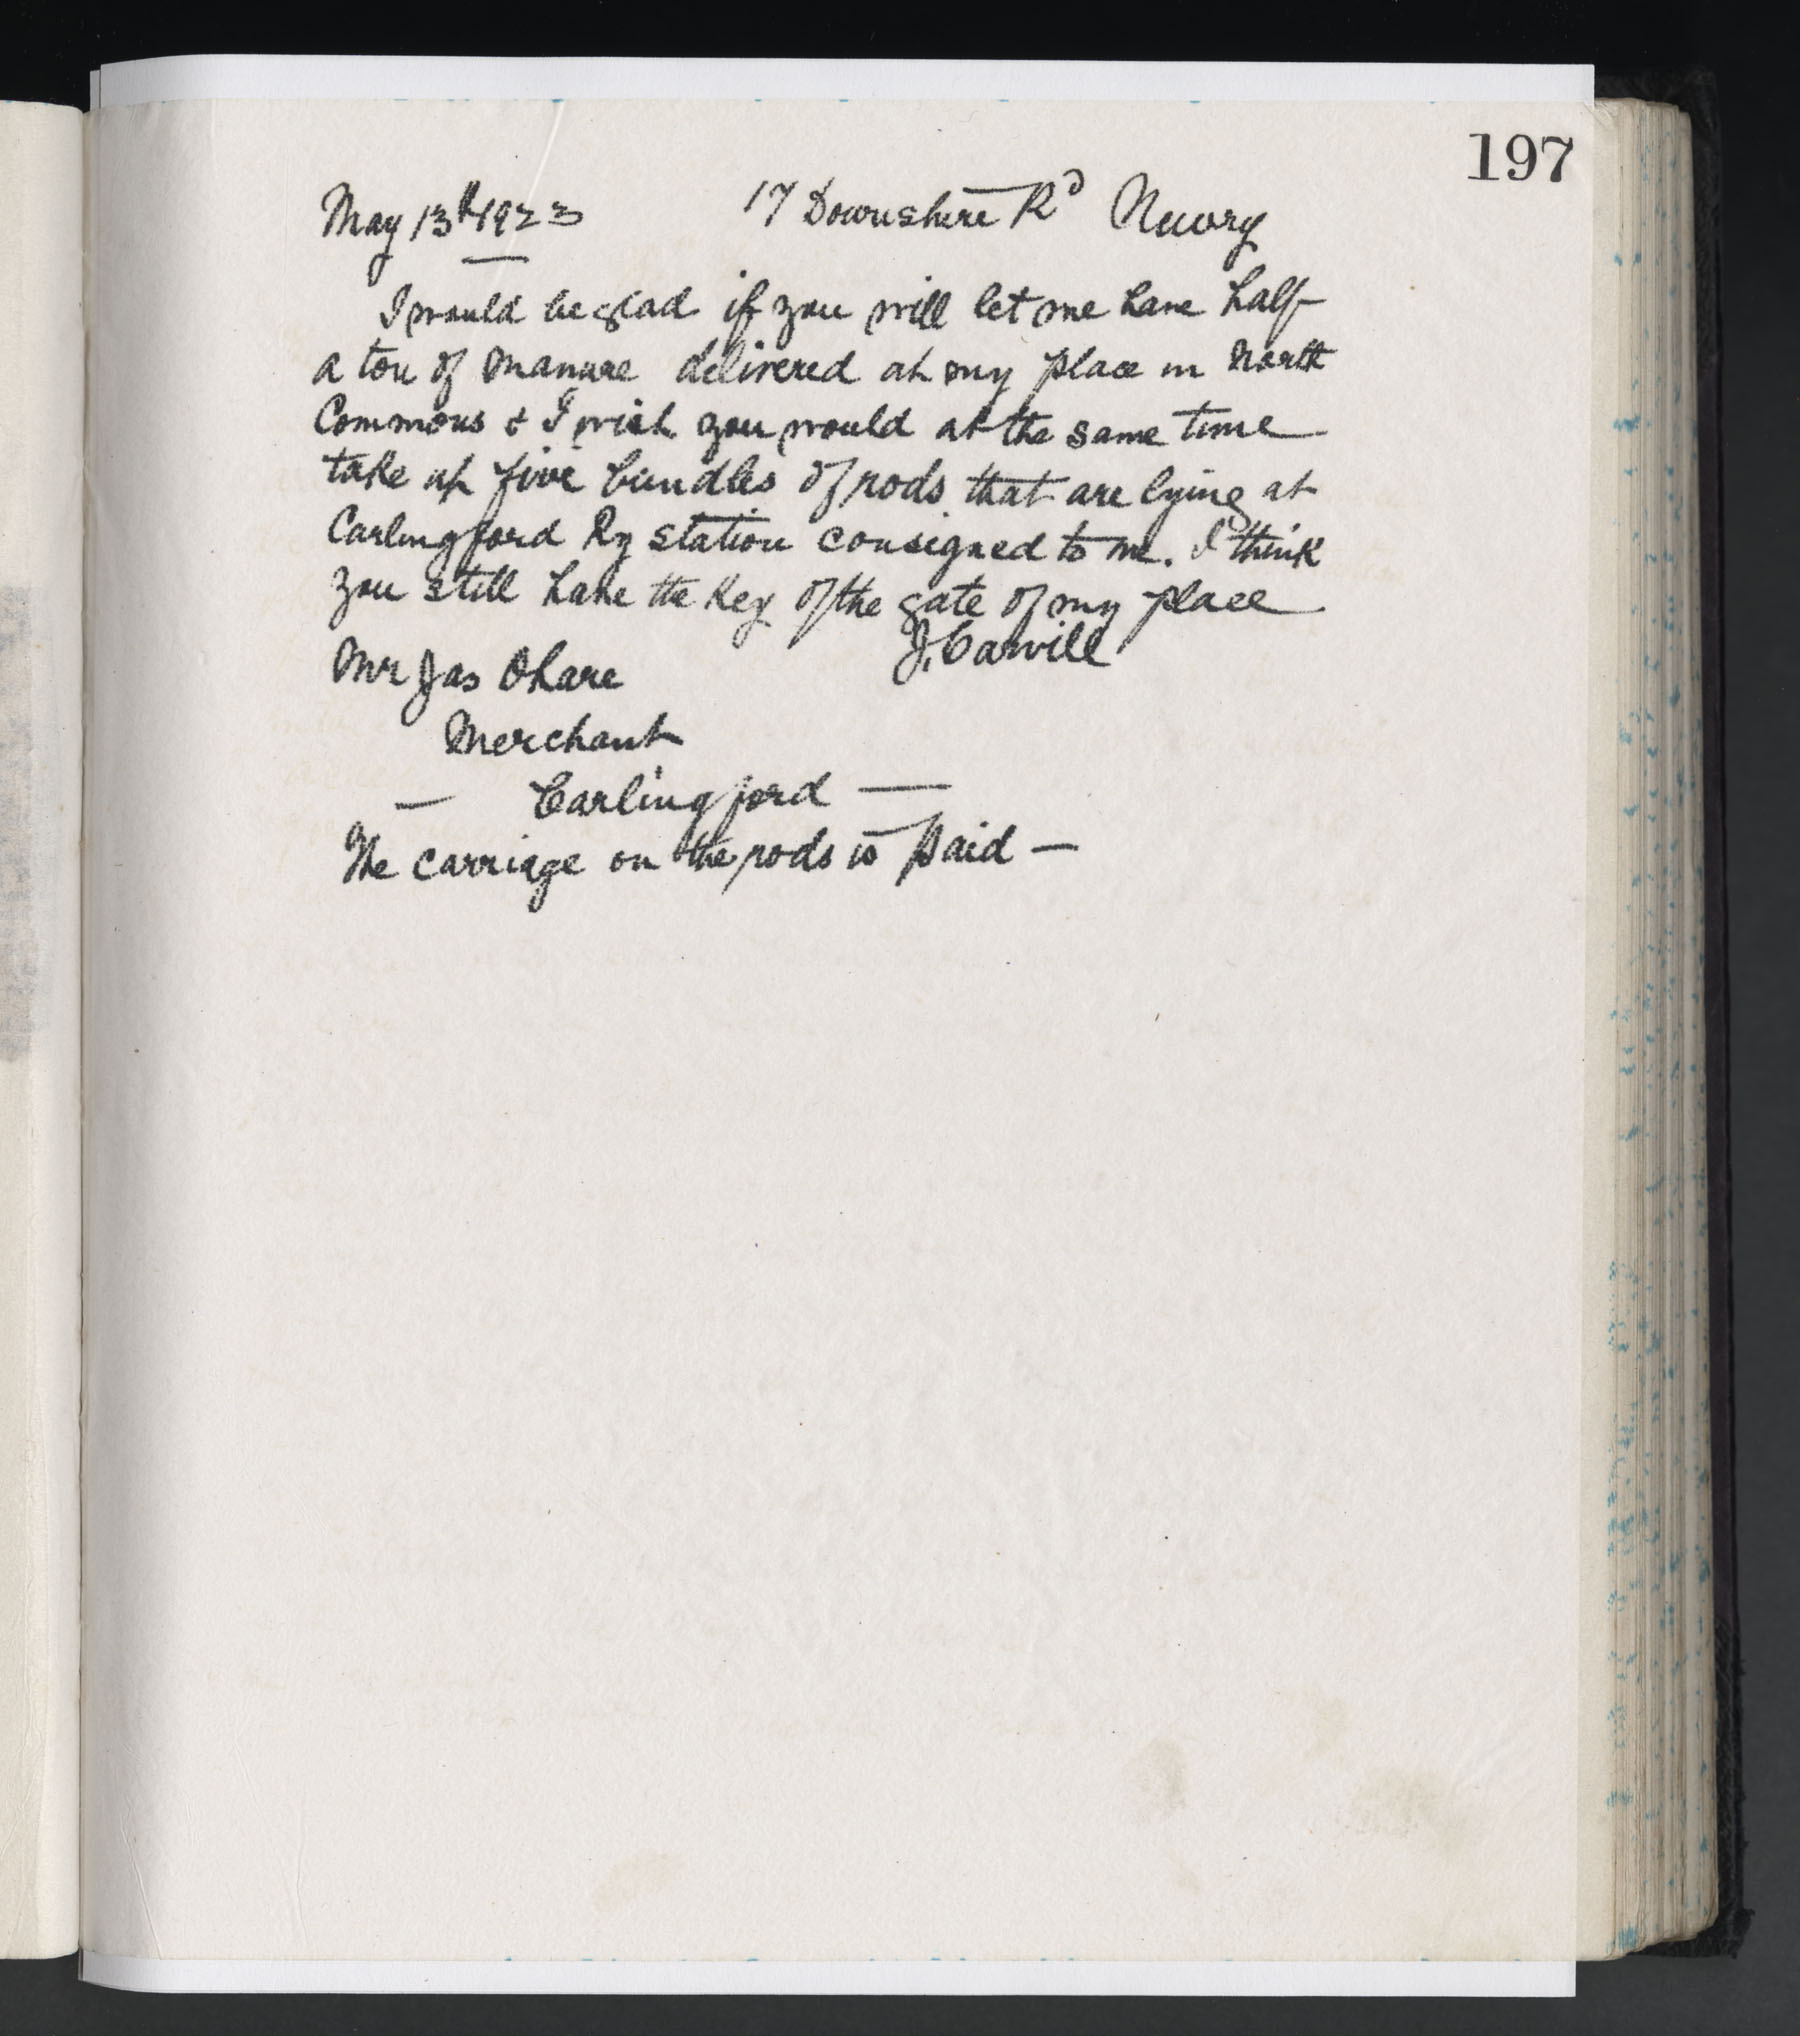 197
May 13th 1923 17 Downshire Rd Newry
I would be glad if you will let me have half
a ton of manure delivered at my place in North
Commons & I wish you would at the same time
take up five bundles of rods that are lying at
Carlingford Ry station consigned to me. I think
you still have the key of the gate of my place
J. Carvill
Mr Jas OHare
Merchant
— Carlingford —
The carriage on the rods is paid —